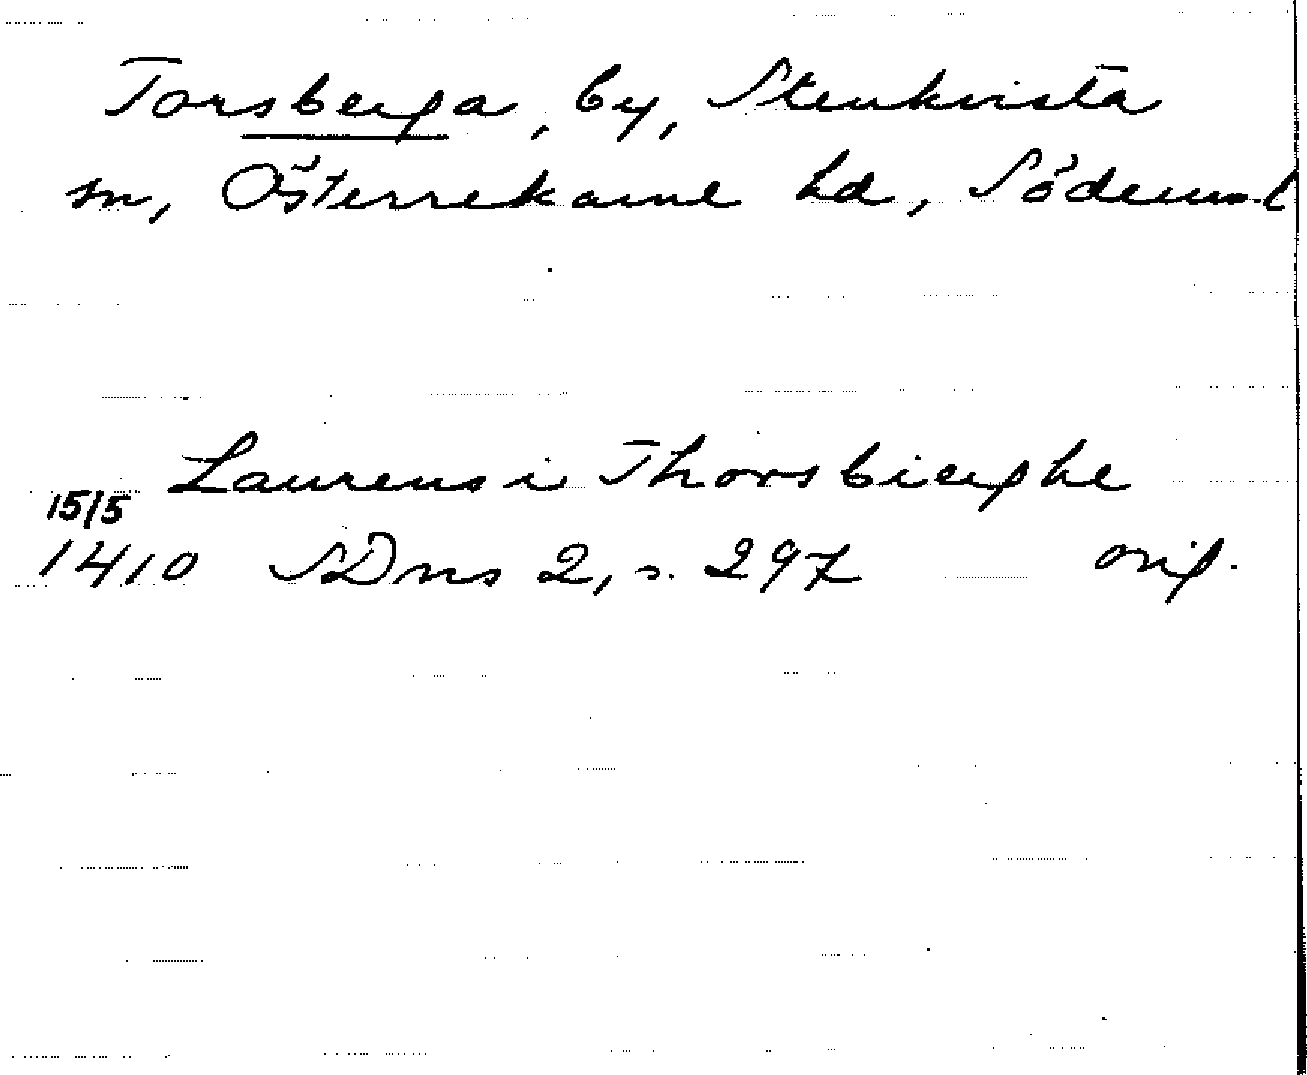 Torsberga, by, Stenkvista
sn, Österrekarne hd, Söderml
Laurens i Thorsbierghe
15/5
1410 SDns 2, s. 297 orig.